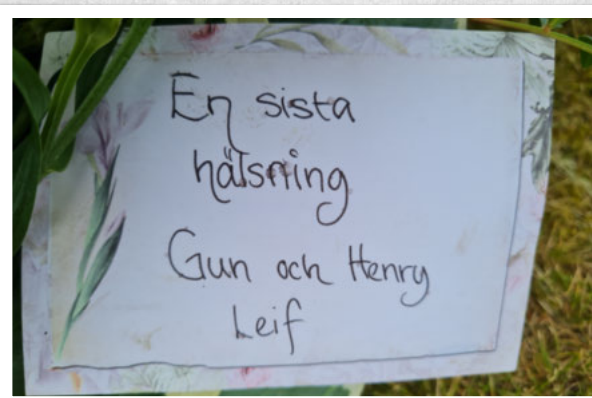 En sista
hälsning
Gun och Henry
Leif